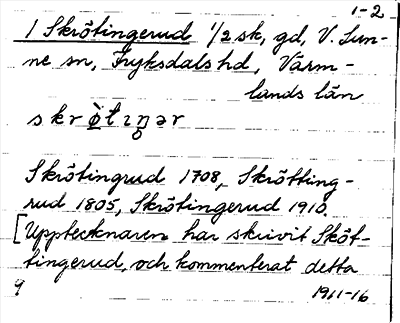 1-2
1 Skrötingerud 1/2 sk, gd, V. Sun-
ne sn, Fryksdals hd, Värm-
lands län
skrø̀tıŋ̥ər
Skrötingrud 1708, Skrötting-
rud 1805, Skrötingerud 1910.
[Upptecknaren har skrivit Sköt-
tingerud, och kommenterat detta
9 1911-16